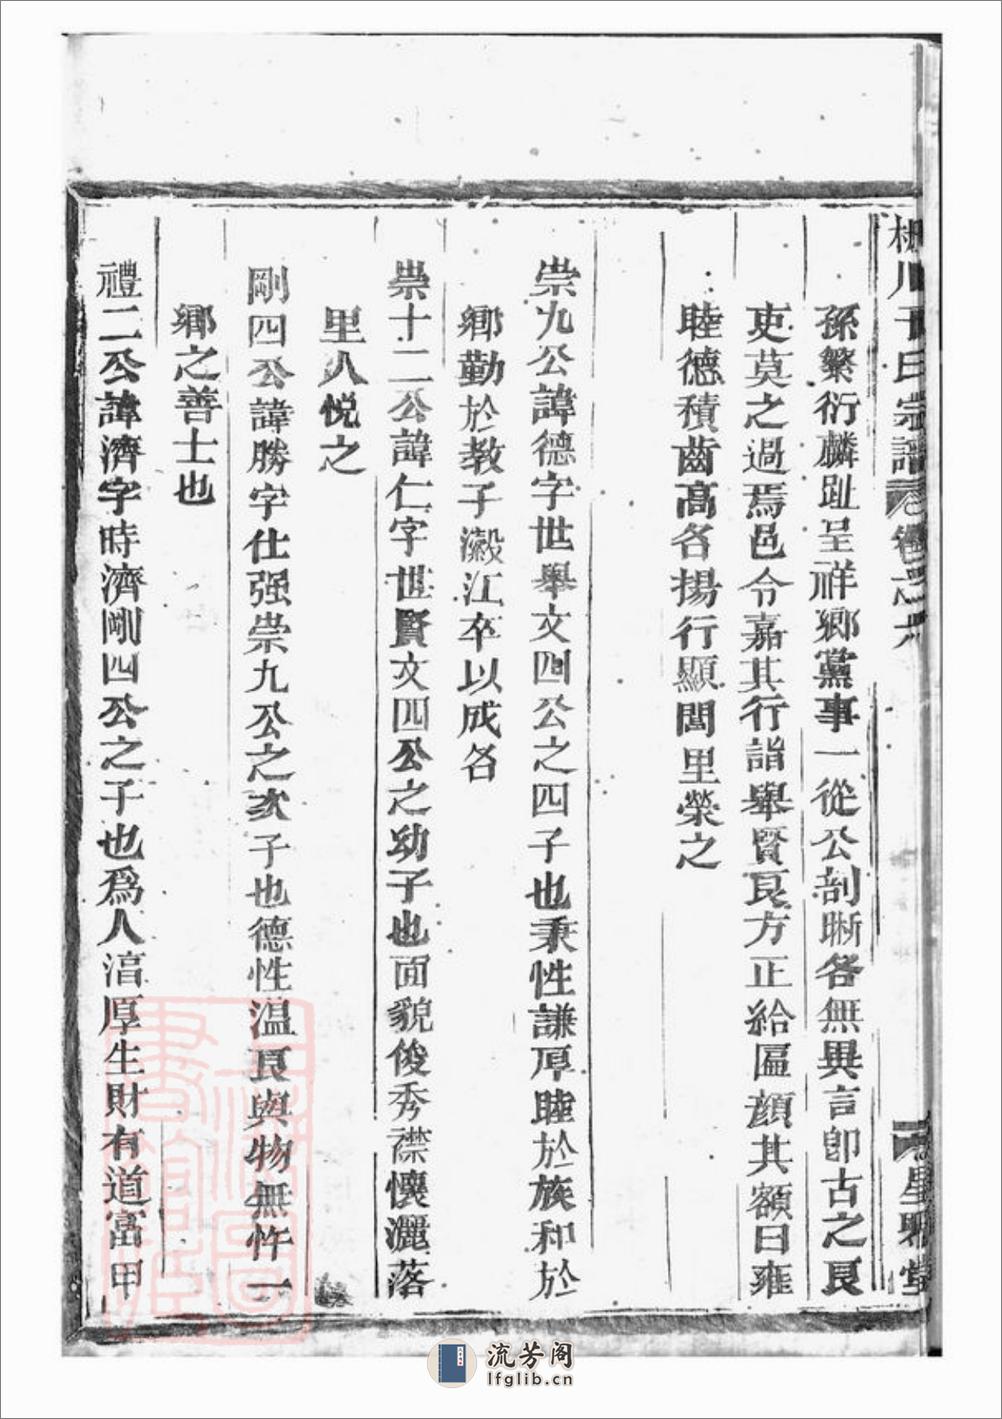 川 氏宗譜 卷之六 聚 堂
孫繁衍麟趾呈祥鄉黨事一從公剖晰各無異言卽古之良
吏莫之過焉邑令嘉其行詣舉賢良方正給匾顔其額曰雍
睦德積齒高各揚行顯閭里榮之
崇九公諱德字世舉文四公之四子也秉性謙厚睦於族和於
鄉勤於教子瀫江卒以成名
崇十二公諱仁字世賢文四公之幼子也面貌俊秀襟懷灑落
里人悅之
剛四公諱勝字仕强崇九公之次子也德性温良與物無忤一
鄉之善士也
禮二公諱濟字時濟剛四公之子也爲人渟厚生財有道富甲
流芳阁
lfglib.cn